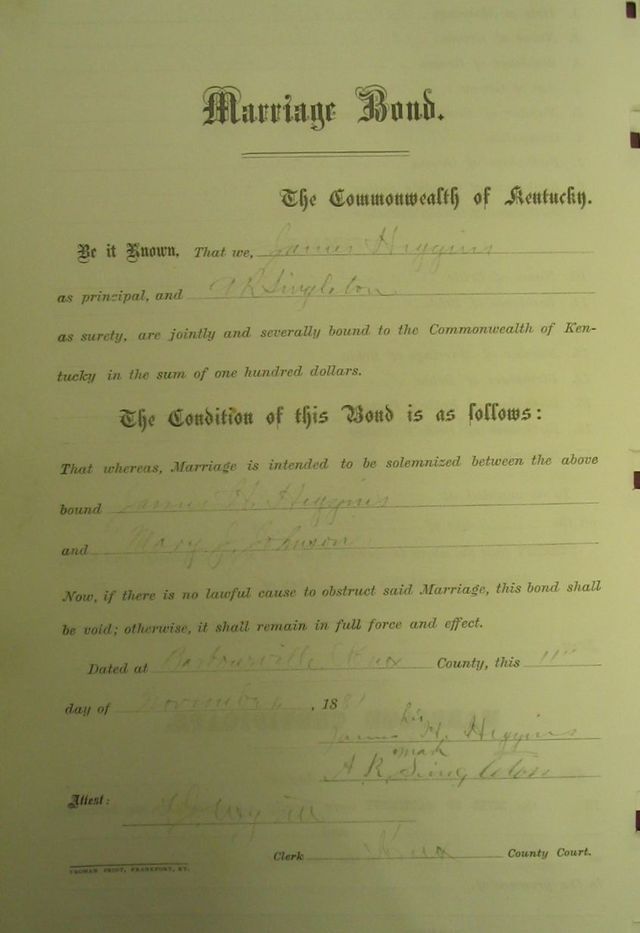 Marriage Bond.
The Commonwealth of Kentucky.
Be it Known, That we, James Higgins
as principal, and A R Singleton
as surety, are jointly and severally bound to the Commonwealth of Ken-
tucky in the sum of one hundred dollars.
The Condition of this Bond is as follows:
That whereas, Marriage is intended to be solemnized between the above
bound James H. Higgins
and Mary J. Johnson
Now, if there is no lawful cause to obstruct said Marriage, this bond shall
be void; otherwise, it shall remain in full force and effect.
Dated at Barbourville Knox County, this 11th
day of November, 188
his
James H. Higgins
mark
A R Singleton
Attest:
Clerk Knox County Court.
YEOMAN PRINT, FRANKFORT, KY.